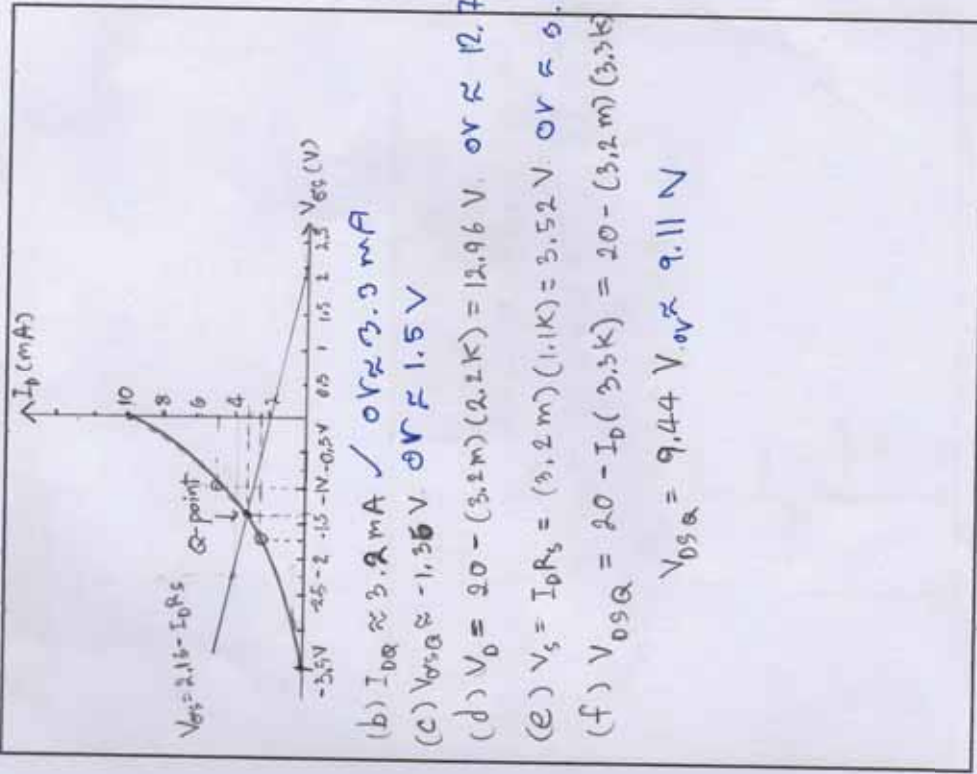 I_D (mA)
V_GS = 2.16 - I_D R_S
Q-point
10
8
6
4
2
-3.5V -2.5 -2 -1.5 -1V -0.5V 0.5 1 1.5 2 2.5 V_GS (V)
(b) I_DQ ≈ 3.2 mA ✓ or ≈ 3.3 mA
(c) V_GSQ ≈ -1.36 V or ≈ 1.5 V
(d) V_D = 20 - (3.2m)(2.2K) = 12.96 V. or ≈ 12.7
(e) V_S = I_D R_S = (3.2m)(1.1K) = 3.52 V. or ≈ 
(f) V_DSQ = 20 - I_D (3.3K) = 20 - (3.2m)(3.3K)
V_DSQ = 9.44 V. or ≈ 9.11 V